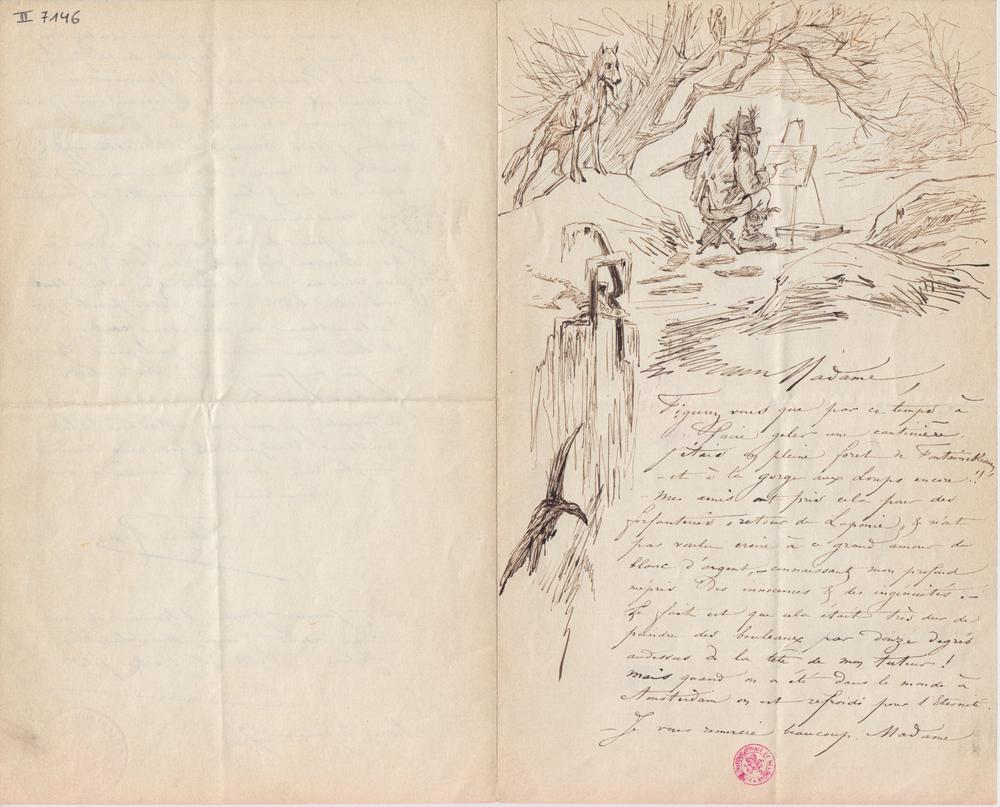 II 7146
Madame,
Figurez vous que par ce temps à
faire geler une cantinière,
j'étais en pleine forêt de Fontainebleau
- et à la gorge aux Loups encore !!
- mes amis ont pris cela pour des
forfanteries, retour de Laponie, & n'ont
pas voulu croire à ce grand amour du
blanc d'argent, - connaissant mon profond
mépris des innocences & des ingénuités. -
Le fait est que cela était très dur de
peindre des bouleaux par douze degrés
audessus de la tête de mon tuteur !
mais quand on a été dans le monde à
Amsterdam on est refroidi pour l'Eternité.
- Je vous remercie beaucoup, Madame